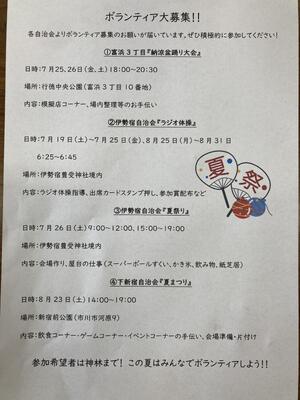 ボランティア大募集!!
各自治会よりボランティア募集のお願いが届いています。ぜひ積極的に参加してください!
①富浜3丁目『納涼盆踊り大会』
日時:7月25、26日(金、土)18:00～20:30
場所:行徳中央公園(富浜3丁目10番地)
内容:模擬店コーナー、場内整理等のお手伝い
②伊勢宿自治会『ラジオ体操』
日時:7月19日(土)～7月25日(金)、8月25日(月)～8月31日
6:25～6:45
場所:伊勢宿豊受神社境内
内容:ラジオ体操指導、出席カードスタンプ押し、参加賞配布など
夏
祭
③伊勢宿自治会『夏祭り』
日時:7月26日(土)9:00～12:00、15:00～19:00
場所:伊勢宿豊受神社境内
内容:会場作り、屋台の仕事(スーパーボールすくい、かき氷、飲み物、紙芝居)
④下新宿自治会『夏まつり』
日時:8月23日(土)14:00～19:00
場所:新宿前公園(市川市河原9)
内容:飲食コーナー・ゲームコーナー・イベントコーナーの手伝い、会場準備・片付け
参加希望者は神林まで! この夏はみんなでボランティアしよう!!